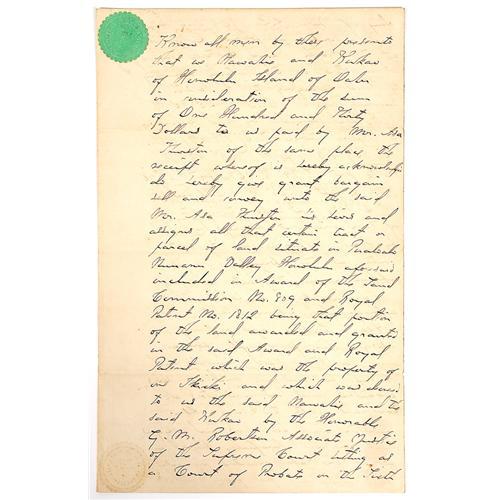 Know all men by these presents
that we Nawahie and Kukae
of Honolulu Island of Oahu
in consideration of the sum
of One Hundred and thirty
Dollars to us paid by Mr. Asa
Thurston of the same place the
receipt whereof is hereby acknowledged
do hereby give grant bargain
sell and convey unto the said
Mr. Asa Thurston his heirs and
assigns all that certain tract or
parcel of land situate in
Nuuanu Valley Honolulu aforesaid
included in Award of the Land
Commission No. 809 and Royal
Patent No. 1812 being that portion
of the land awarded and granted
in the said Award and Royal
Patent which was the property of
and which was
to us the said Nawahie and the
said Kukae by the Honorable
G. M. Robertson Associate Justice
of the Supreme Court sitting as
a Court of Probate on the